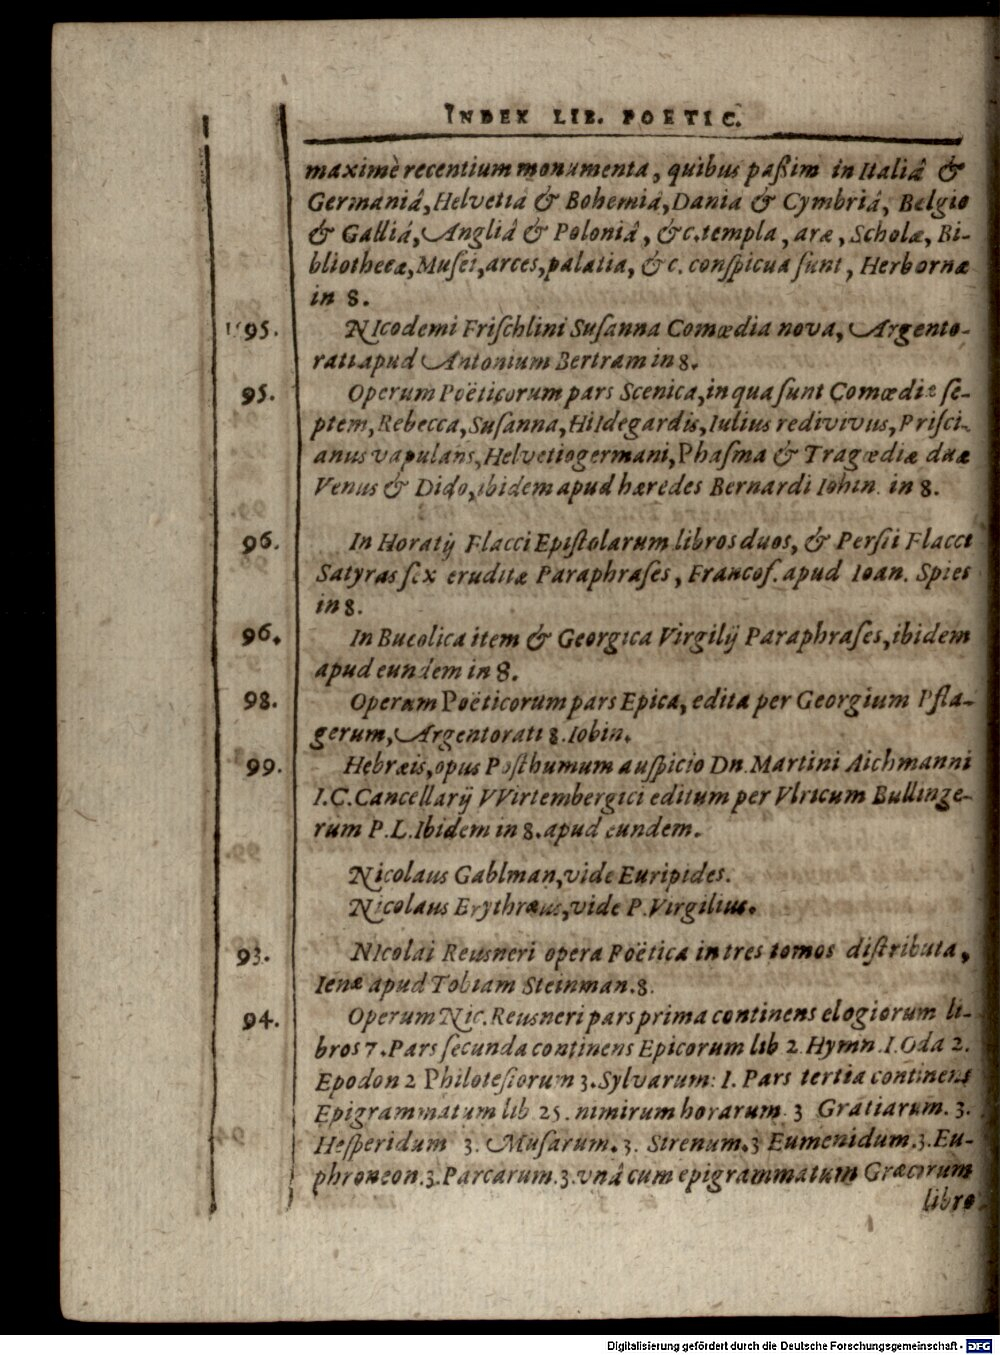 INDEX LIB. POETIC.
maximè recentium monumenta, quibus paſſim in Italiâ &
Germaniâ, Helvetia & Bohemiâ, Dania & Cymbriâ, Belgio
& Galliâ, Angliâ & Poloniâ, &c. templa, aræ, Scholæ, Bi-
bliothecæ, Muſei, arces, palatia, &c. conſpicua ſunt, Herbornæ
in 8.
95. NIcodemi Friſchlini Suſanna Comœdia nova, Argento-
rati apud Antonium Bertram in 8.
95. Operum Poëticorum pars Scenica, in qua ſunt Comœdiæ ſe-
ptem, Rebecca, Suſanna, Hildegardis, Iulius redivivus, Priſci-
anus vapulans, Helvetiogermani, Phaſma & Tragœdiæ duæ
Venus & Dido, ibidem apud hæredes Bernardi Iobin. in 8.
96. In Horatij Flacci Epiſtolarum libros duos, & Perſii Flacci
Satyras ſex eruditæ Paraphraſes, Francof. apud Ioan. Spies
in 8.
96. In Bucolica item & Georgica Virgilij Paraphraſes, ibidem
apud eundem in 8.
98. Operum Poëticorum pars Epica, edita per Georgium Pfla-
gerum, Argentorati 8. Iobin.
99. Hebræis, opus Poſthumum auſpicio Dn. Martini Aichmanni
I.C. Cancellarij VVirtembergici editum per Vlricum Bullinge-
rum P.L. Ibidem in 8. apud eundem.
Nicolaus Gablman, vide Euripides.
Nicolaus Erythræus, vide P. Virgilius.
93. NIcolai Reusneri opera Poëtica in tres tomos diſtributa,
Ienæ apud Tobiam Steinman. 8.
94. Operum Nic. Reusneri pars prima continens elogiorum li-
bros 7. Pars ſecunda continens Epicorum lib 2. Hymn. I. Oda 2.
Epodon 2 Philoteſiorum 3. Sylvarum: I. Pars tertia continens
Epigrammatum lib 25. nimirum horarum. 3 Gratiarum. 3.
Heſperidum 3. Muſarum. 3. Strenum. 3 Eumenidum. 3. Eu-
phroneon. 3. Parcarum. 3. vnâ cum epigrammatum Græcorum
libro
Digitalisierung gefördert durch die Deutsche Forschungsgemeinschaft - DFG